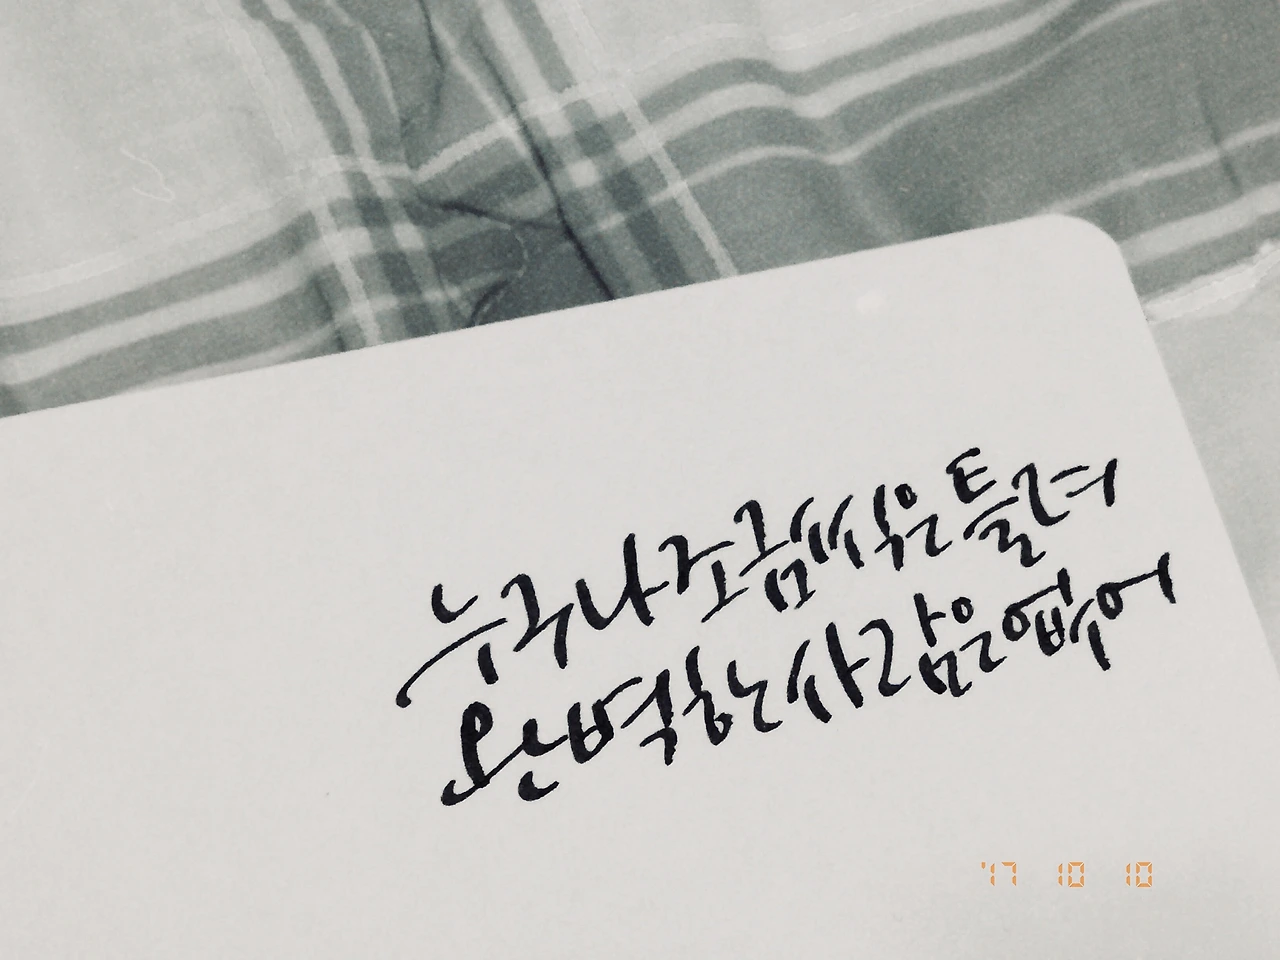 누구나 조금씩은 틀려
완벽한 사람은 없어
'17 10 10